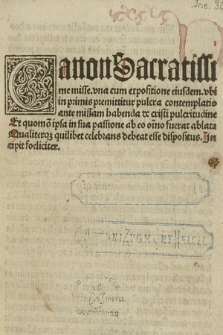 Inc. 36
Canon Sacratissi
me misse. vna cum expositione eiusdem. vbi
in primis premittitur pulcra contemplatio
ante missam habenda de cristi pulcritudine
Et quomō ipsa in sua passione ab eo oīno fuerat ablata
Qualiterqꝫ quilibet celebrans debeat esse dispositus. In
cipit foeliciter.